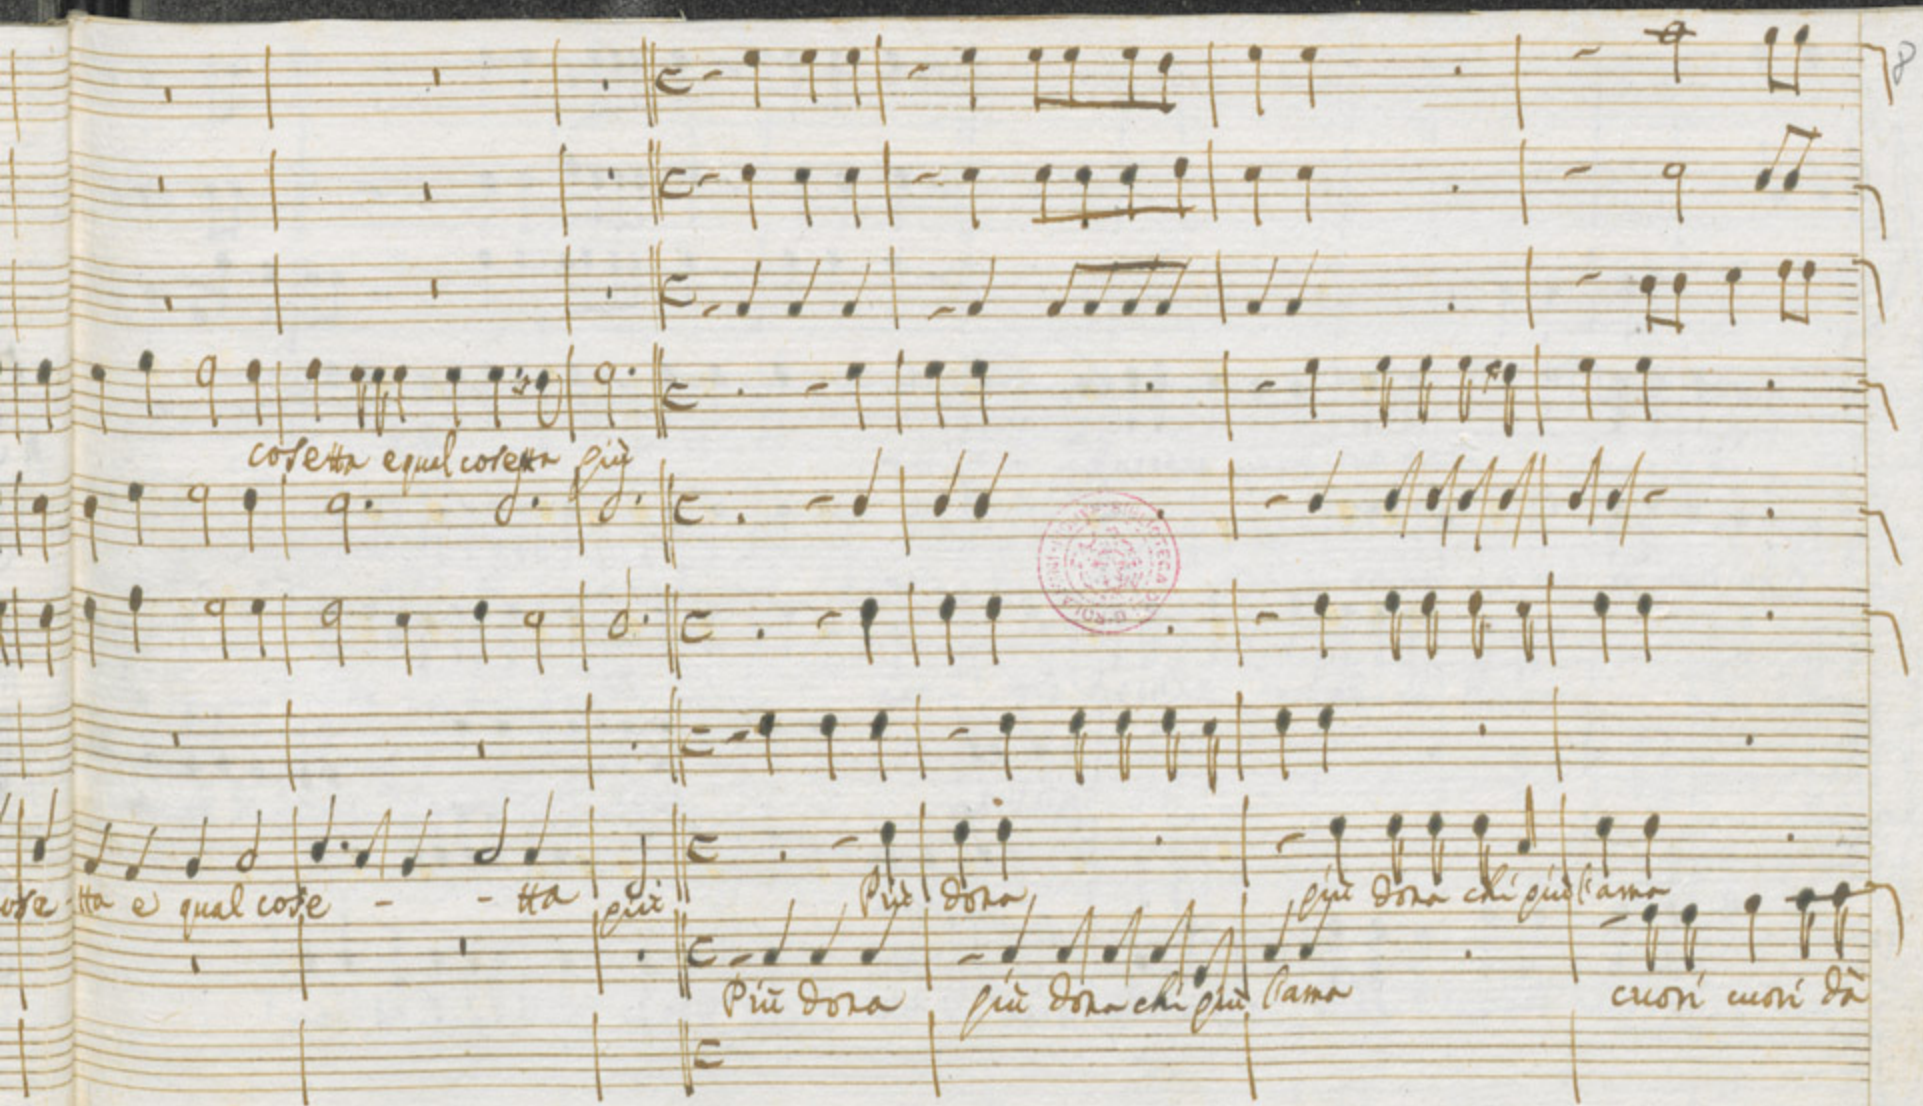 8
cosetta e qual cosetta più
cose - tta e qual cose - - tta più Più dona più dona chi più l'ama
Più dona più dona chi più l'ama cuori cuori dà